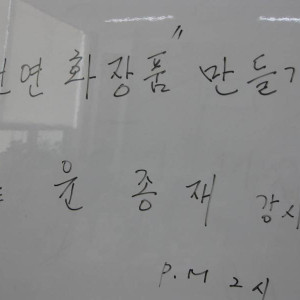 연 화장품" 만들
윤 종 재 강사
P.M 2시